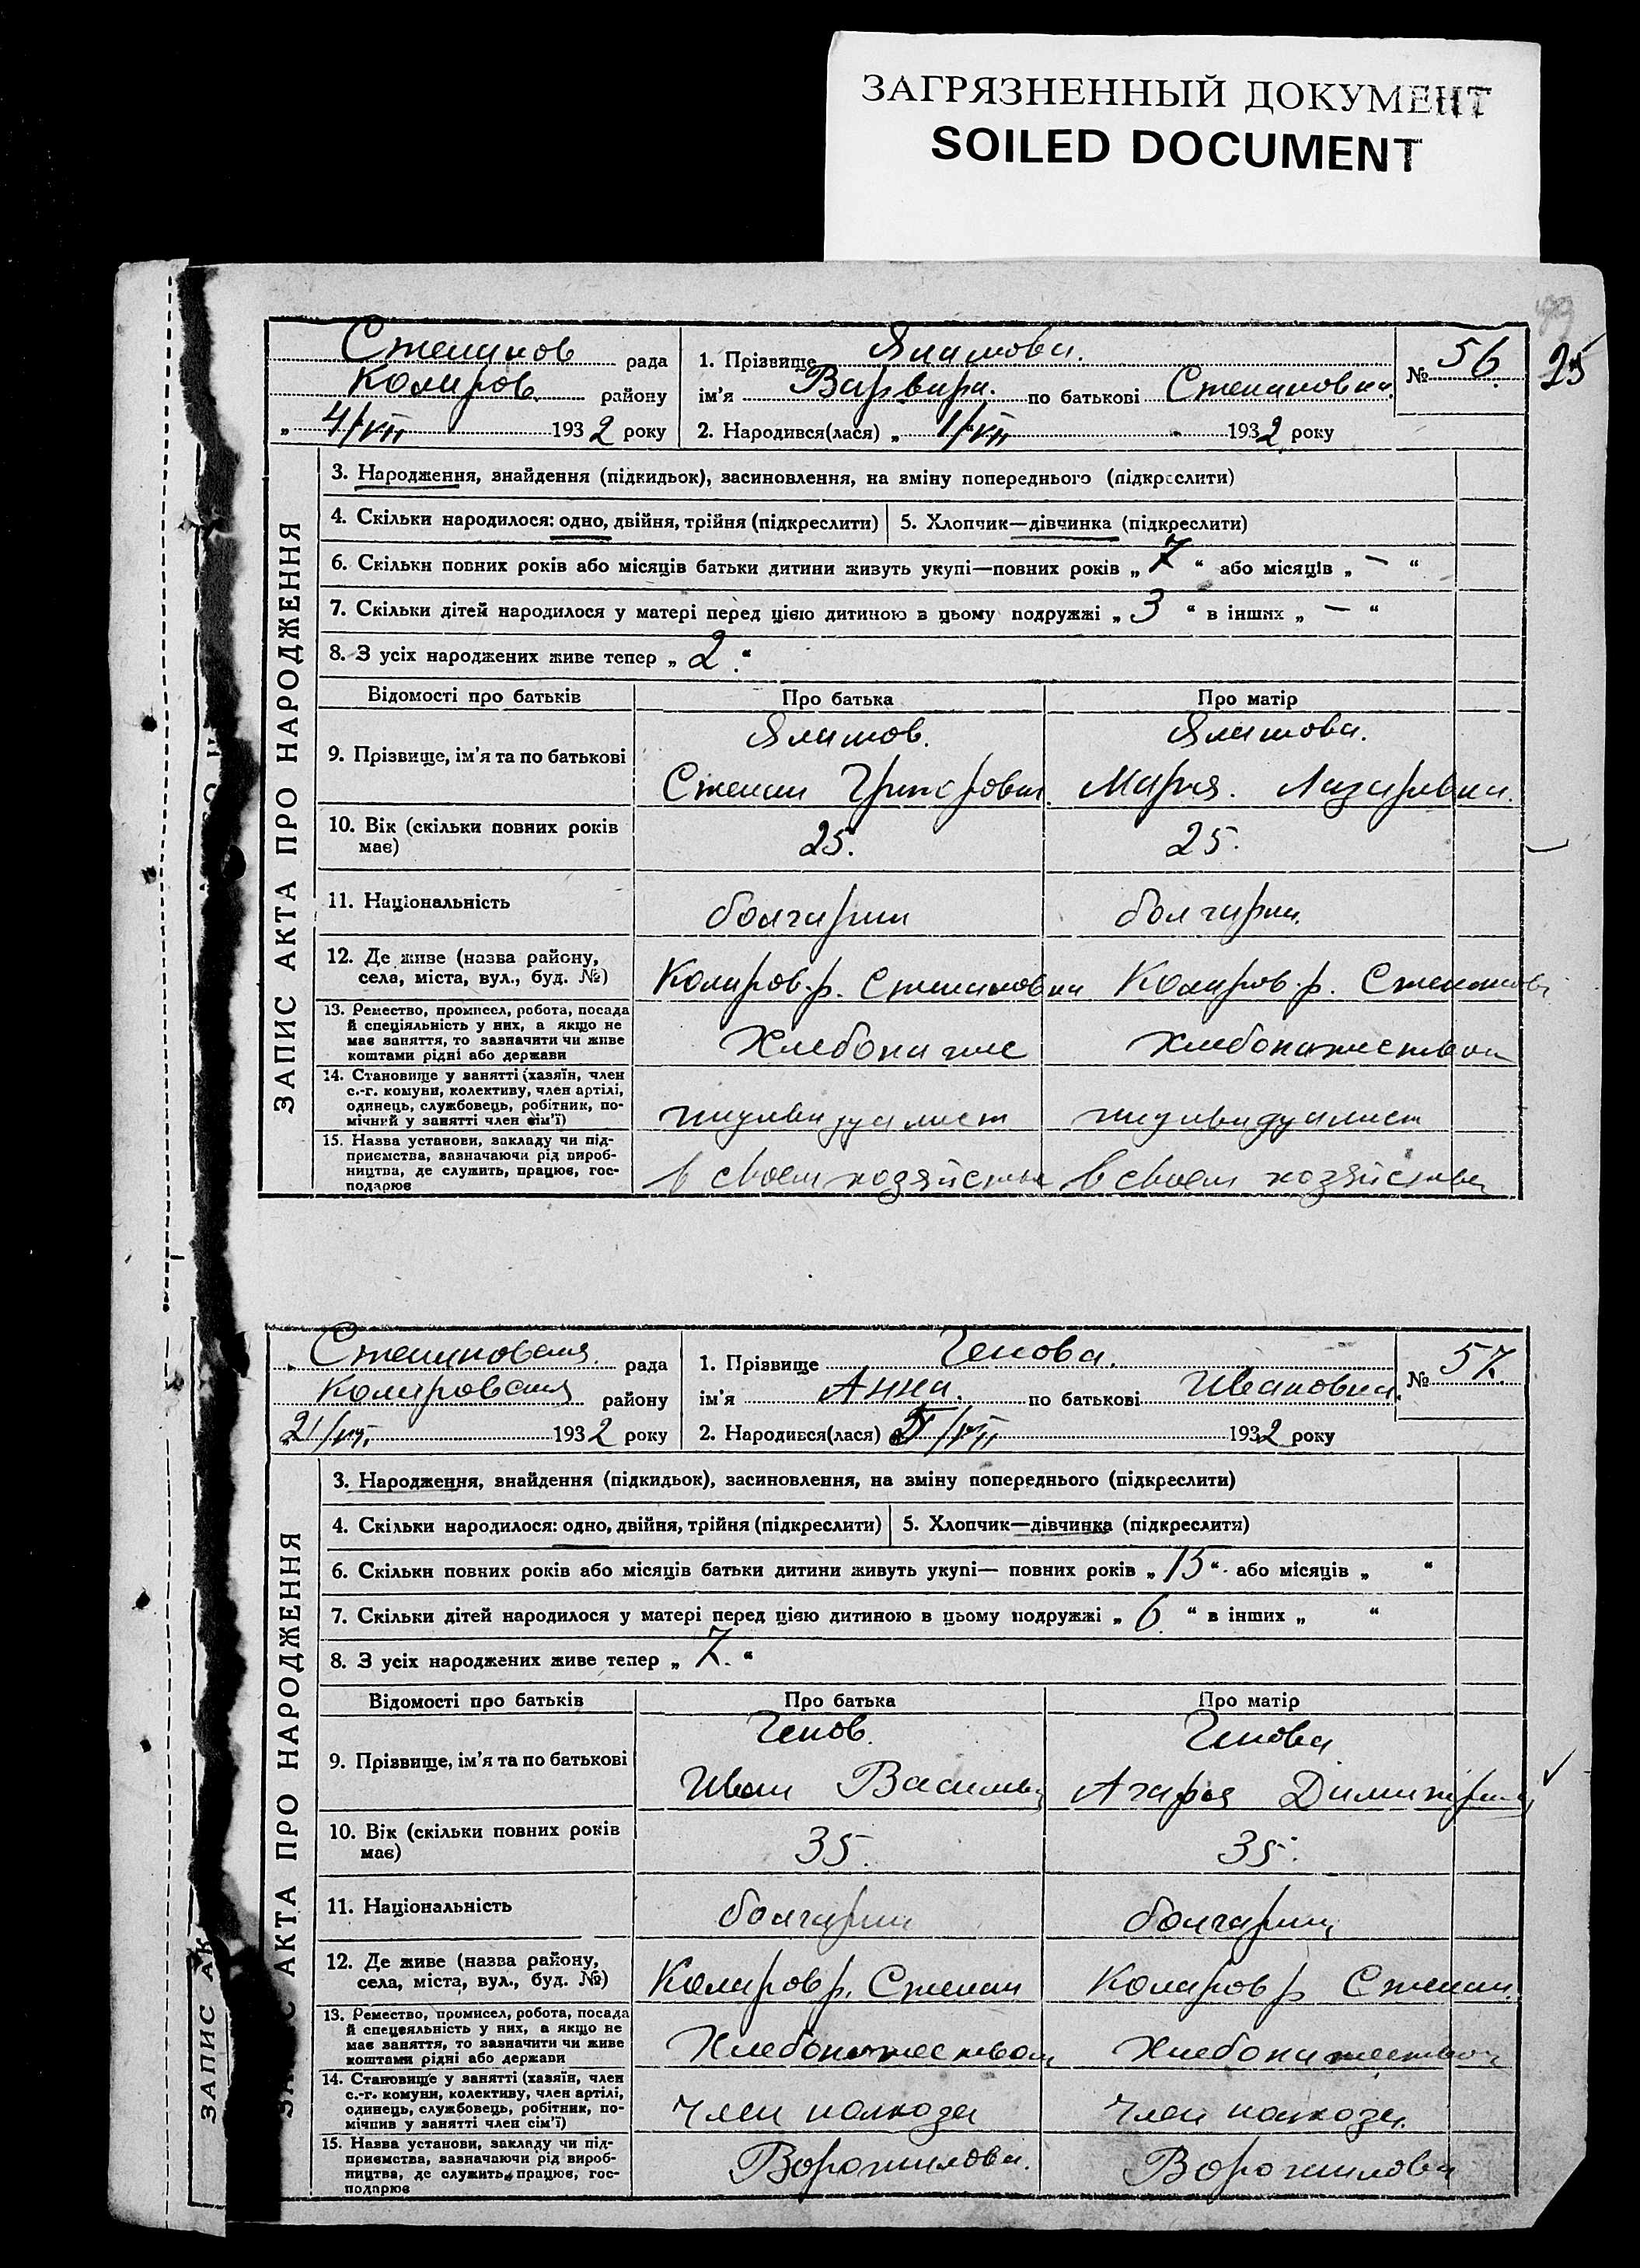 ЗАГРЯЗНЕННЫЙ ДОКУМЕНТ
SOILED DOCUMENT
25
ЗАПИС АКТА ПРО НАРОДЖЕННЯ
Степанов рада
Коларов. району
„ 4/VII 1932 року
1. Прізвище Ялатова.
ім'я Варвара. по батькові Степановна.
2. Народився(лася) „ 1/VII 1932 року
№ 56.
3. Народження, знайдення (підкидьок), засиновлення, на зміну попереднього (підкреслити)
4. Скільки народилося: одно, двійня, трійня (підкреслити) 5. Хлопчик—дівчинка (підкреслити)
6. Скільки повних років або місяців батьки дитини живуть укупі—повних років „ 7 “ або місяців „ — “
7. Скільки дітей народилося у матері перед цією дитиною в цьому подружжі „ 3 “ в інших „ — “
8. З усіх народжених живе тепер „ 2. “
Відомості про батьків Про батька Про матір
9. Прізвище, ім'я та по батькові
Ялатов.
Степан
Ялатова.
Мария. Лазаревна.
10. Вік (скільки повних років
має)
25. 25.
11. Національність болгарин болгарин.
12. Де живе (назва району,
села, міста, вул., буд. №)
Коларов.р. Степановка Коларов.р.
13. Ремество, промисел, робота, посада
й спеціяльність у них, а якщо не
має заняття, то зазначити чи живе
коштами рідні або держави
14. Становище у занятті (хазяїн, член
с.-г. комуни, колективу, член артілі,
одинець, службовець, робітник, по-
мічний у занятті член сім'ї)
индивидуалист индивидуалист
15. Назва установи, закладу чи під-
приємства, зазначаючи рід вироб-
ництва, де служить, працює, гос-
подарює
в своем хозяйстве в своем хозяйстве
ЗАПИС АКТА ПРО НАРОДЖЕННЯ
рада
району
21/VII. 1932 року
1. Прізвище Генова.
ім'я Анна. по батькові Ивановна.
2. Народився(лася) /VII 1932 року
№ 57.
3. Народження, знайдення (підкидьок), засиновлення, на зміну попереднього (підкреслити)
4. Скільки народилося: одно, двійня, трійня (підкреслити) 5. Хлопчик—дівчинка (підкреслити)
6. Скільки повних років або місяців батьки дитини живуть укупі— повних років „ 15 “ або місяців „ “
7. Скільки дітей народилося у матері перед цією дитиною в цьому подружжі „ 6 “ в інших „ “
8. З усіх народжених живе тепер „ 7. “
Відомості про батьків Про батька Про матір
9. Прізвище, ім'я та по батькові
Генов.
Иван
Генова
10. Вік (скільки повних років
має)
35. 35.
11. Національність болгарин болгарин
12. Де живе (назва району,
села, міста, вул., буд. №)
Коларов р. Степан Коларов р Степан.
13. Ремество, промисел, робота, посада
й спецеяльність у них, а якщо не
має заняття, то зазначити чи живе
коштами рідні або держави
14. Становище у занятті (хазяїн, член
с.-г. комуни, колективу, член артілі,
одинець, службовець, робітник, по-
мічнив у занятті член сім'ї)
член колхоза член колхоза.
15. Назва установи, закладу чи під-
приємства, зазначаючи рід вироб-
ництва, де служить, працює, гос-
подарює
Ворошилова. Ворошилова
ЗАПИС АК